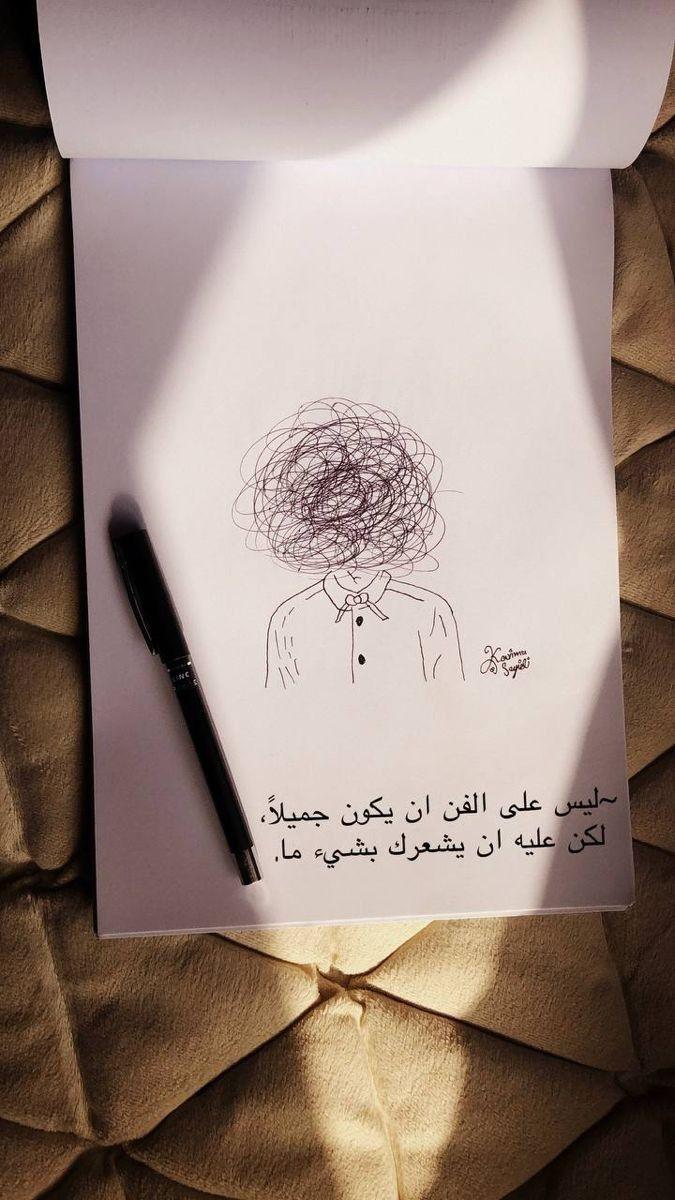 ~ليس على الفن ان يكون جميلاً،
لكن عليه ان يشعرك بشيء ما.